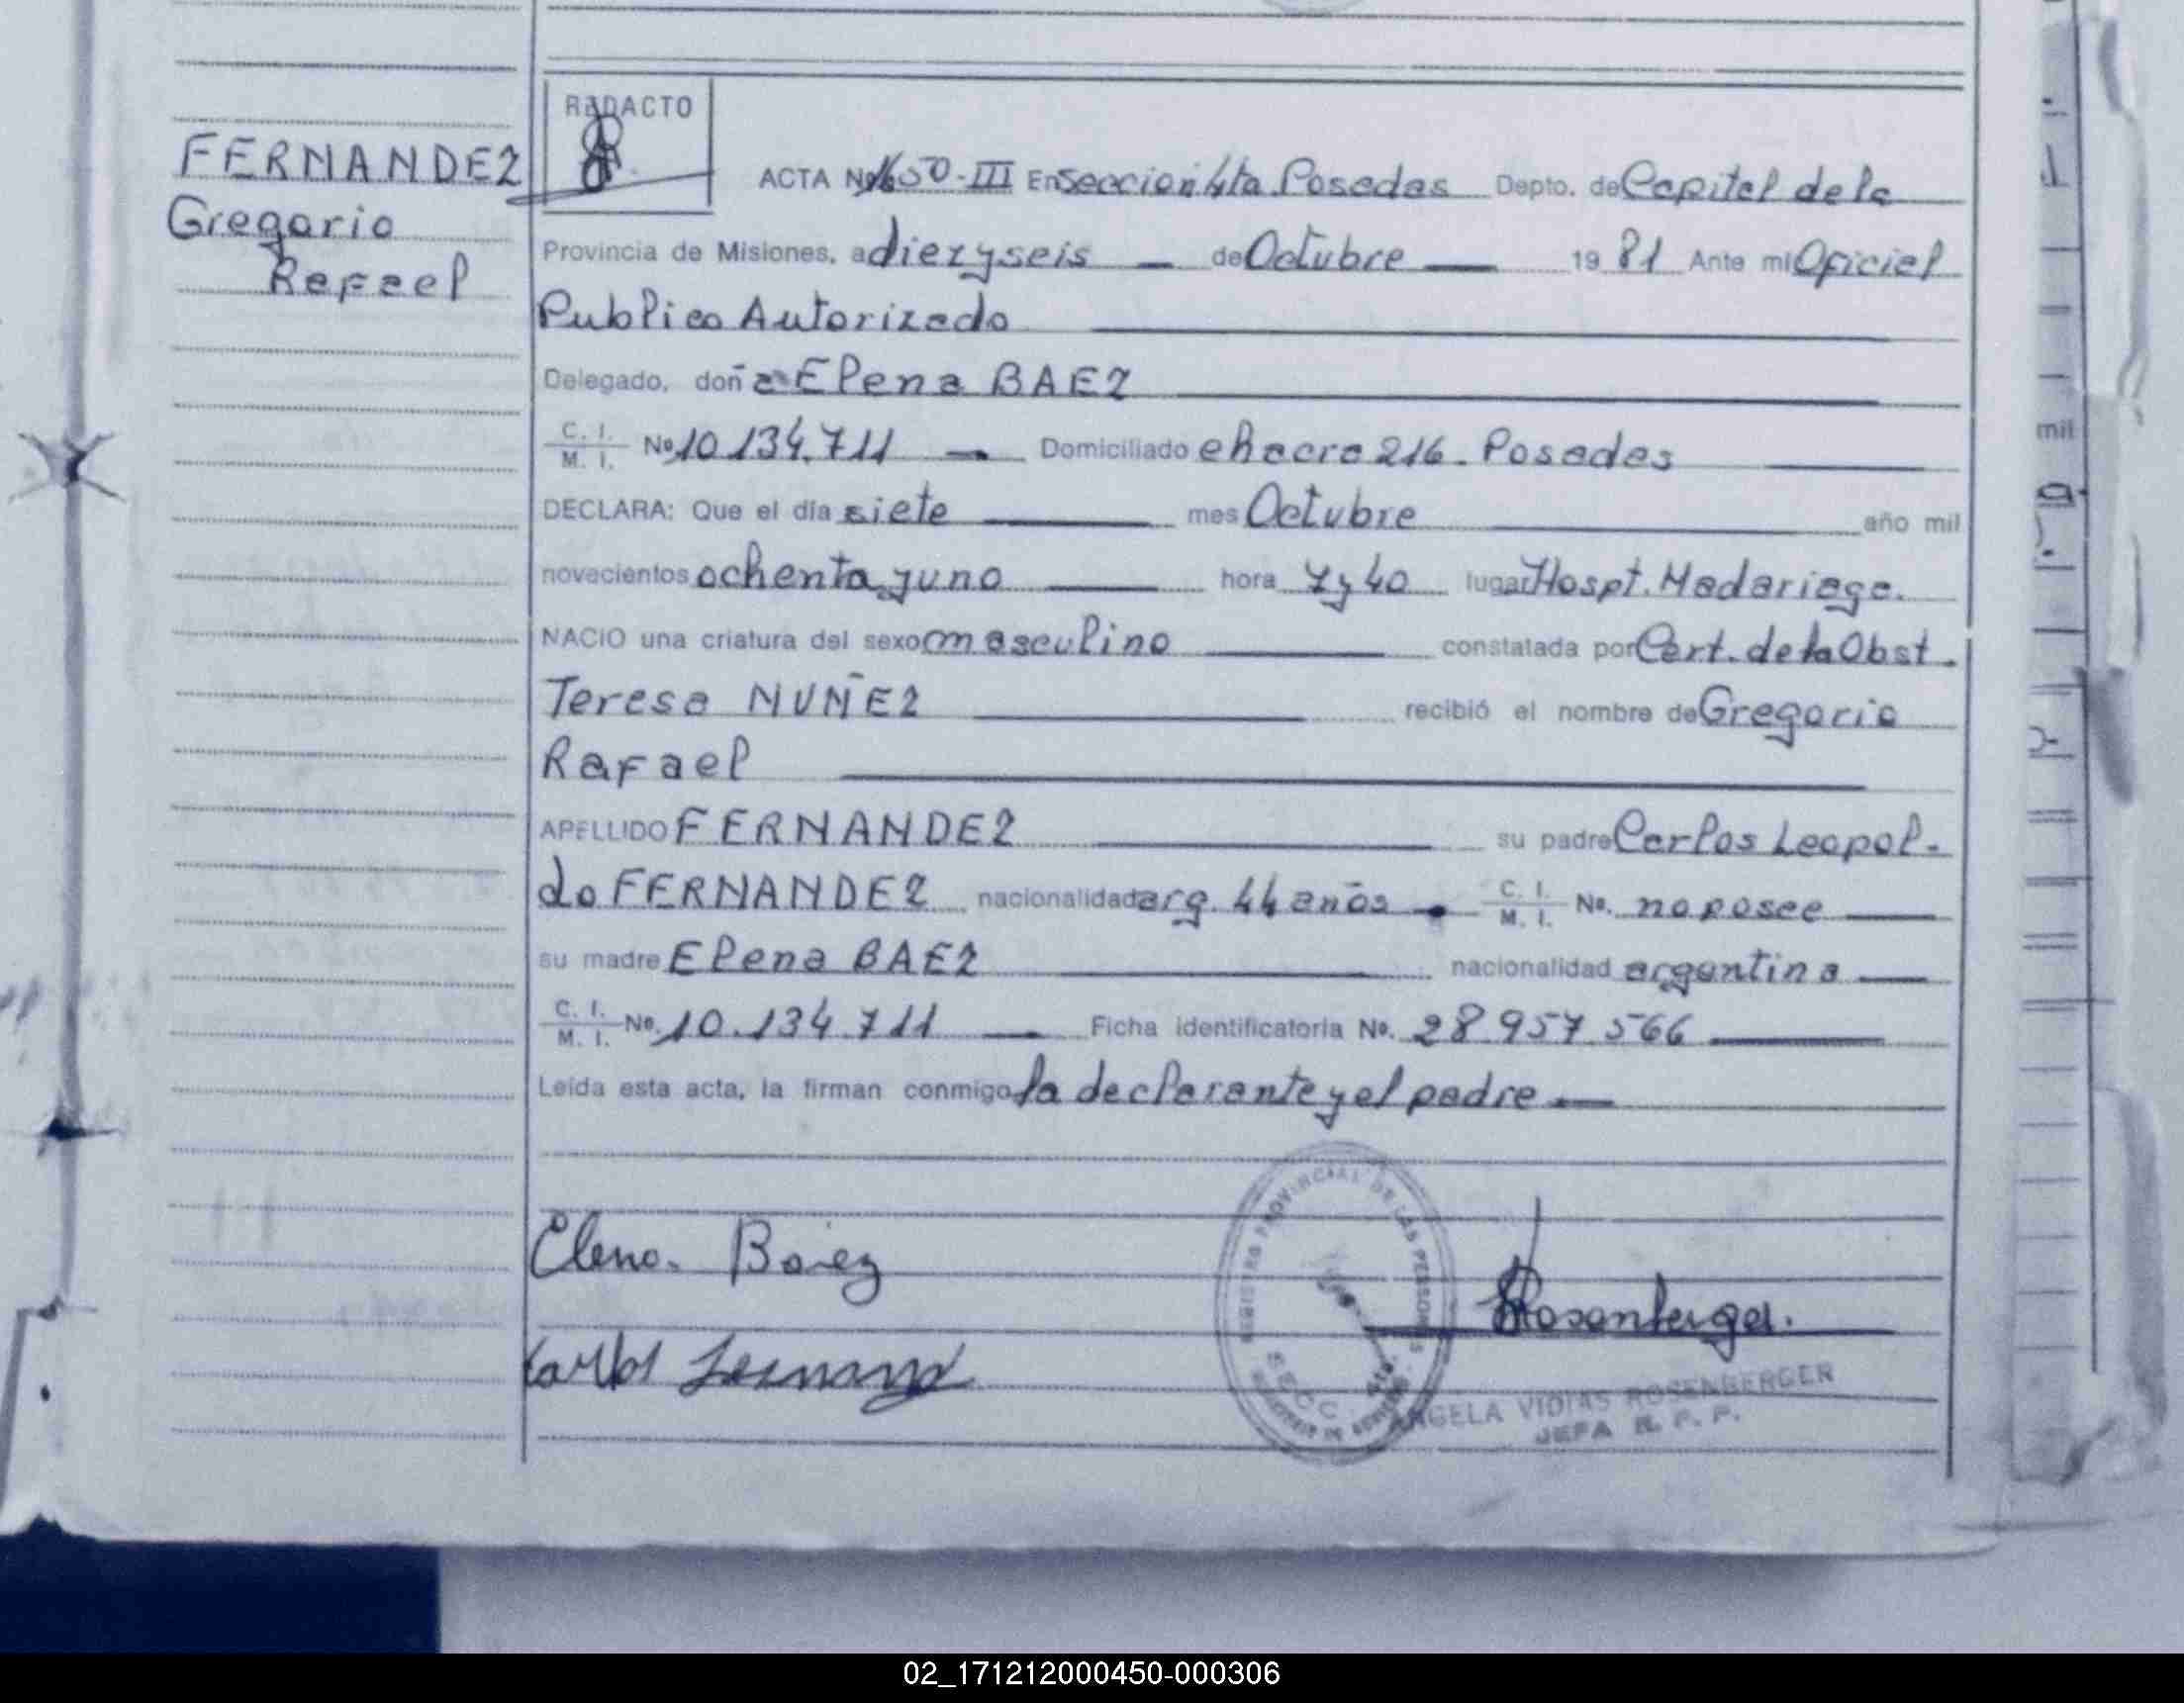 FERNANDEZ
Gregorio
Rafael
REDACTO
ACTA No 1650-III En Seccion 4ta Posadas Depto. de Capital de la
Provincia de Misiones, a diez y seis — de Octubre — 19 81 Ante mi Oficial
Publico Autorizado
Delegado, doña Elena BAEZ
C. I. / M. I. No 10.134.711 — Domiciliado chacra 216. Posadas
DECLARA: Que el día siete — mes Octubre año mil
novecientos ochenta y uno — hora 7 y 40 lugar Hospt. Madariaga.
NACIO una criatura del sexo masculino — constatada por Cert. de la Obst.
Teresa NUÑEZ — recibió el nombre de Gregorio
Rafael
APELLIDO FERNANDEZ — su padre Carlos Leopol-
do FERNANDEZ nacionalidad arg. 44 años - C. I. / M. I. No. no posee —
su madre Elena BAEZ — nacionalidad argentina —
C. I. / M. I. No. 10.134.711 — Ficha identificatoria No. 28.957.566 —
Leída esta acta, la firman conmigo la declarante y el padre —
Elena Baez
Rosenberger.
Carlos Fernand
REGISTRO PROVINCIAL DE LAS PERSONAS
SECC. 4ta.
ANGELA VIDIAS ROSENBERGER
JEFA R. P. P.
mil
02_171212000450-000306